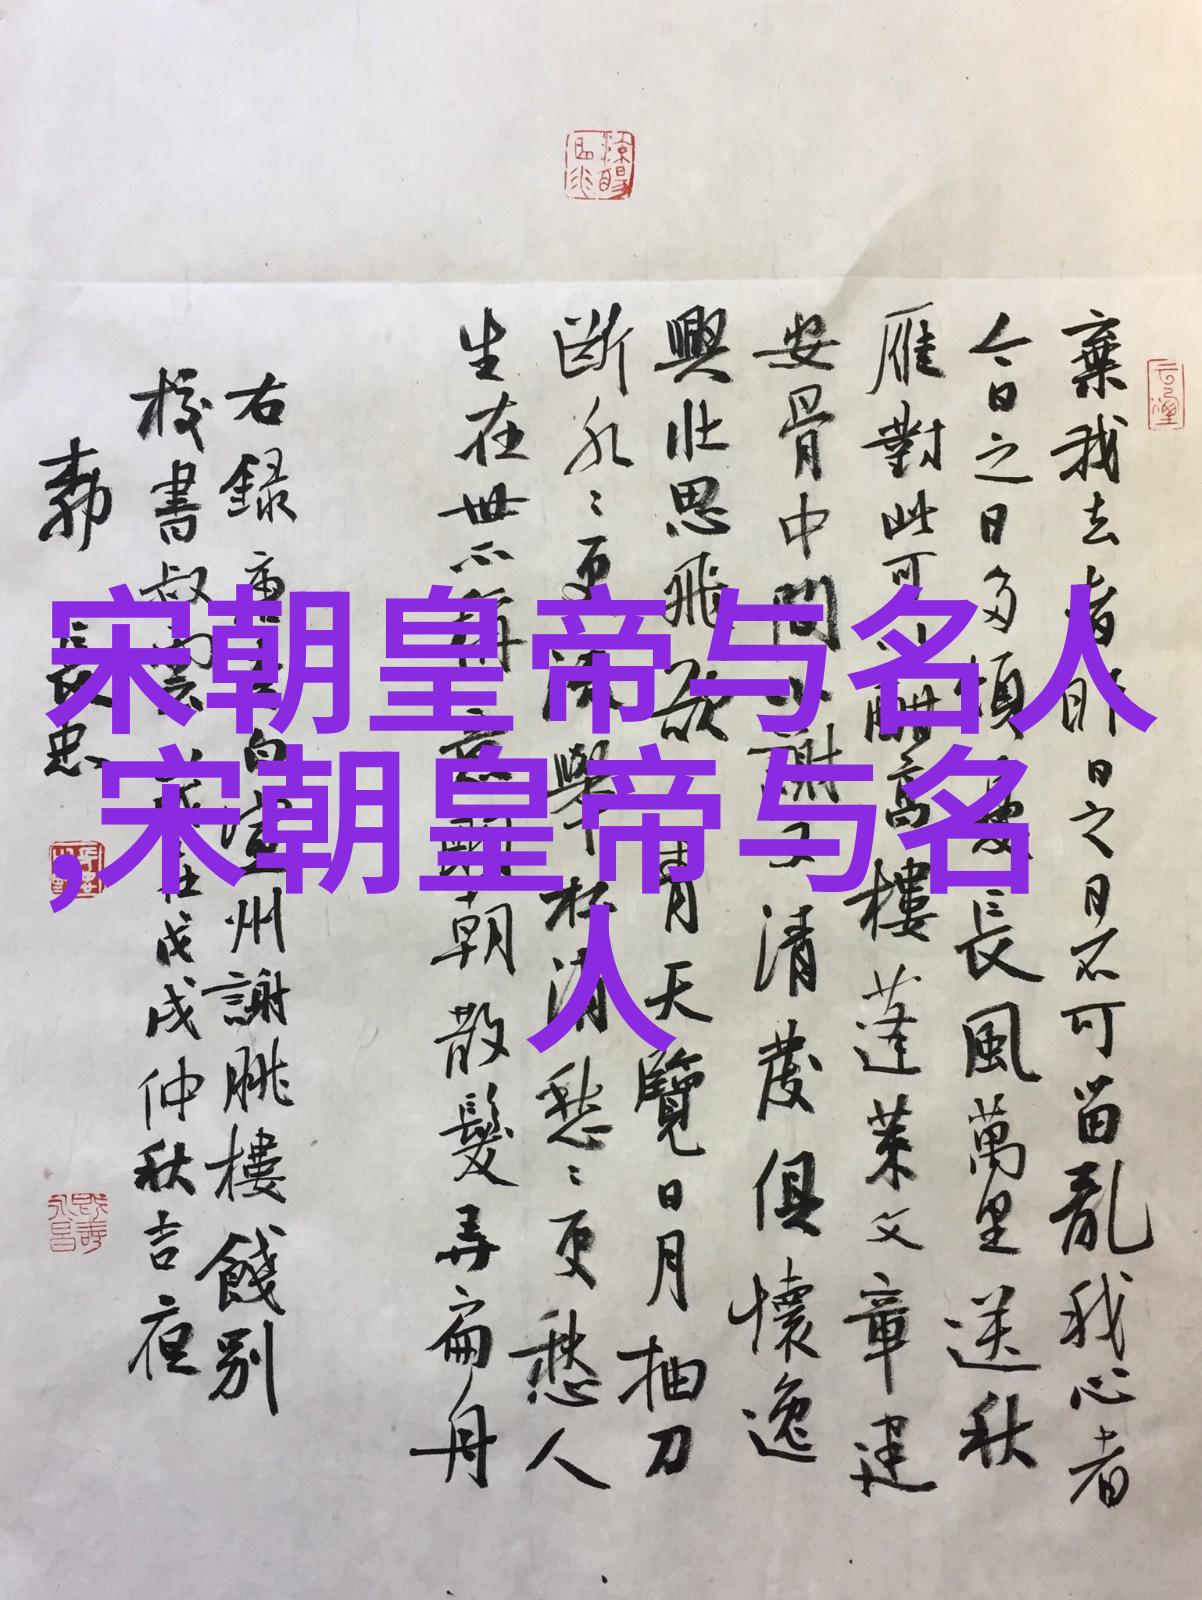 宋朝皇帝与名人
,宋朝皇帝与名
人
棄我去者昨日之日不可留亂我心者
今日之日多煩憂長風萬里送秋
雁對此可以酣高樓蓬萊文章建
安骨中間小謝又清發俱懷逸
興壯思飛欲青天覽日月抽刀
斷水〻更流舉杯消愁〻更愁人
生在世不稱意明朝散髮弄扁舟
右錄唐李白宣州謝朓樓餞別
校書叔雲在戊戌仲秋吉夜
長忠